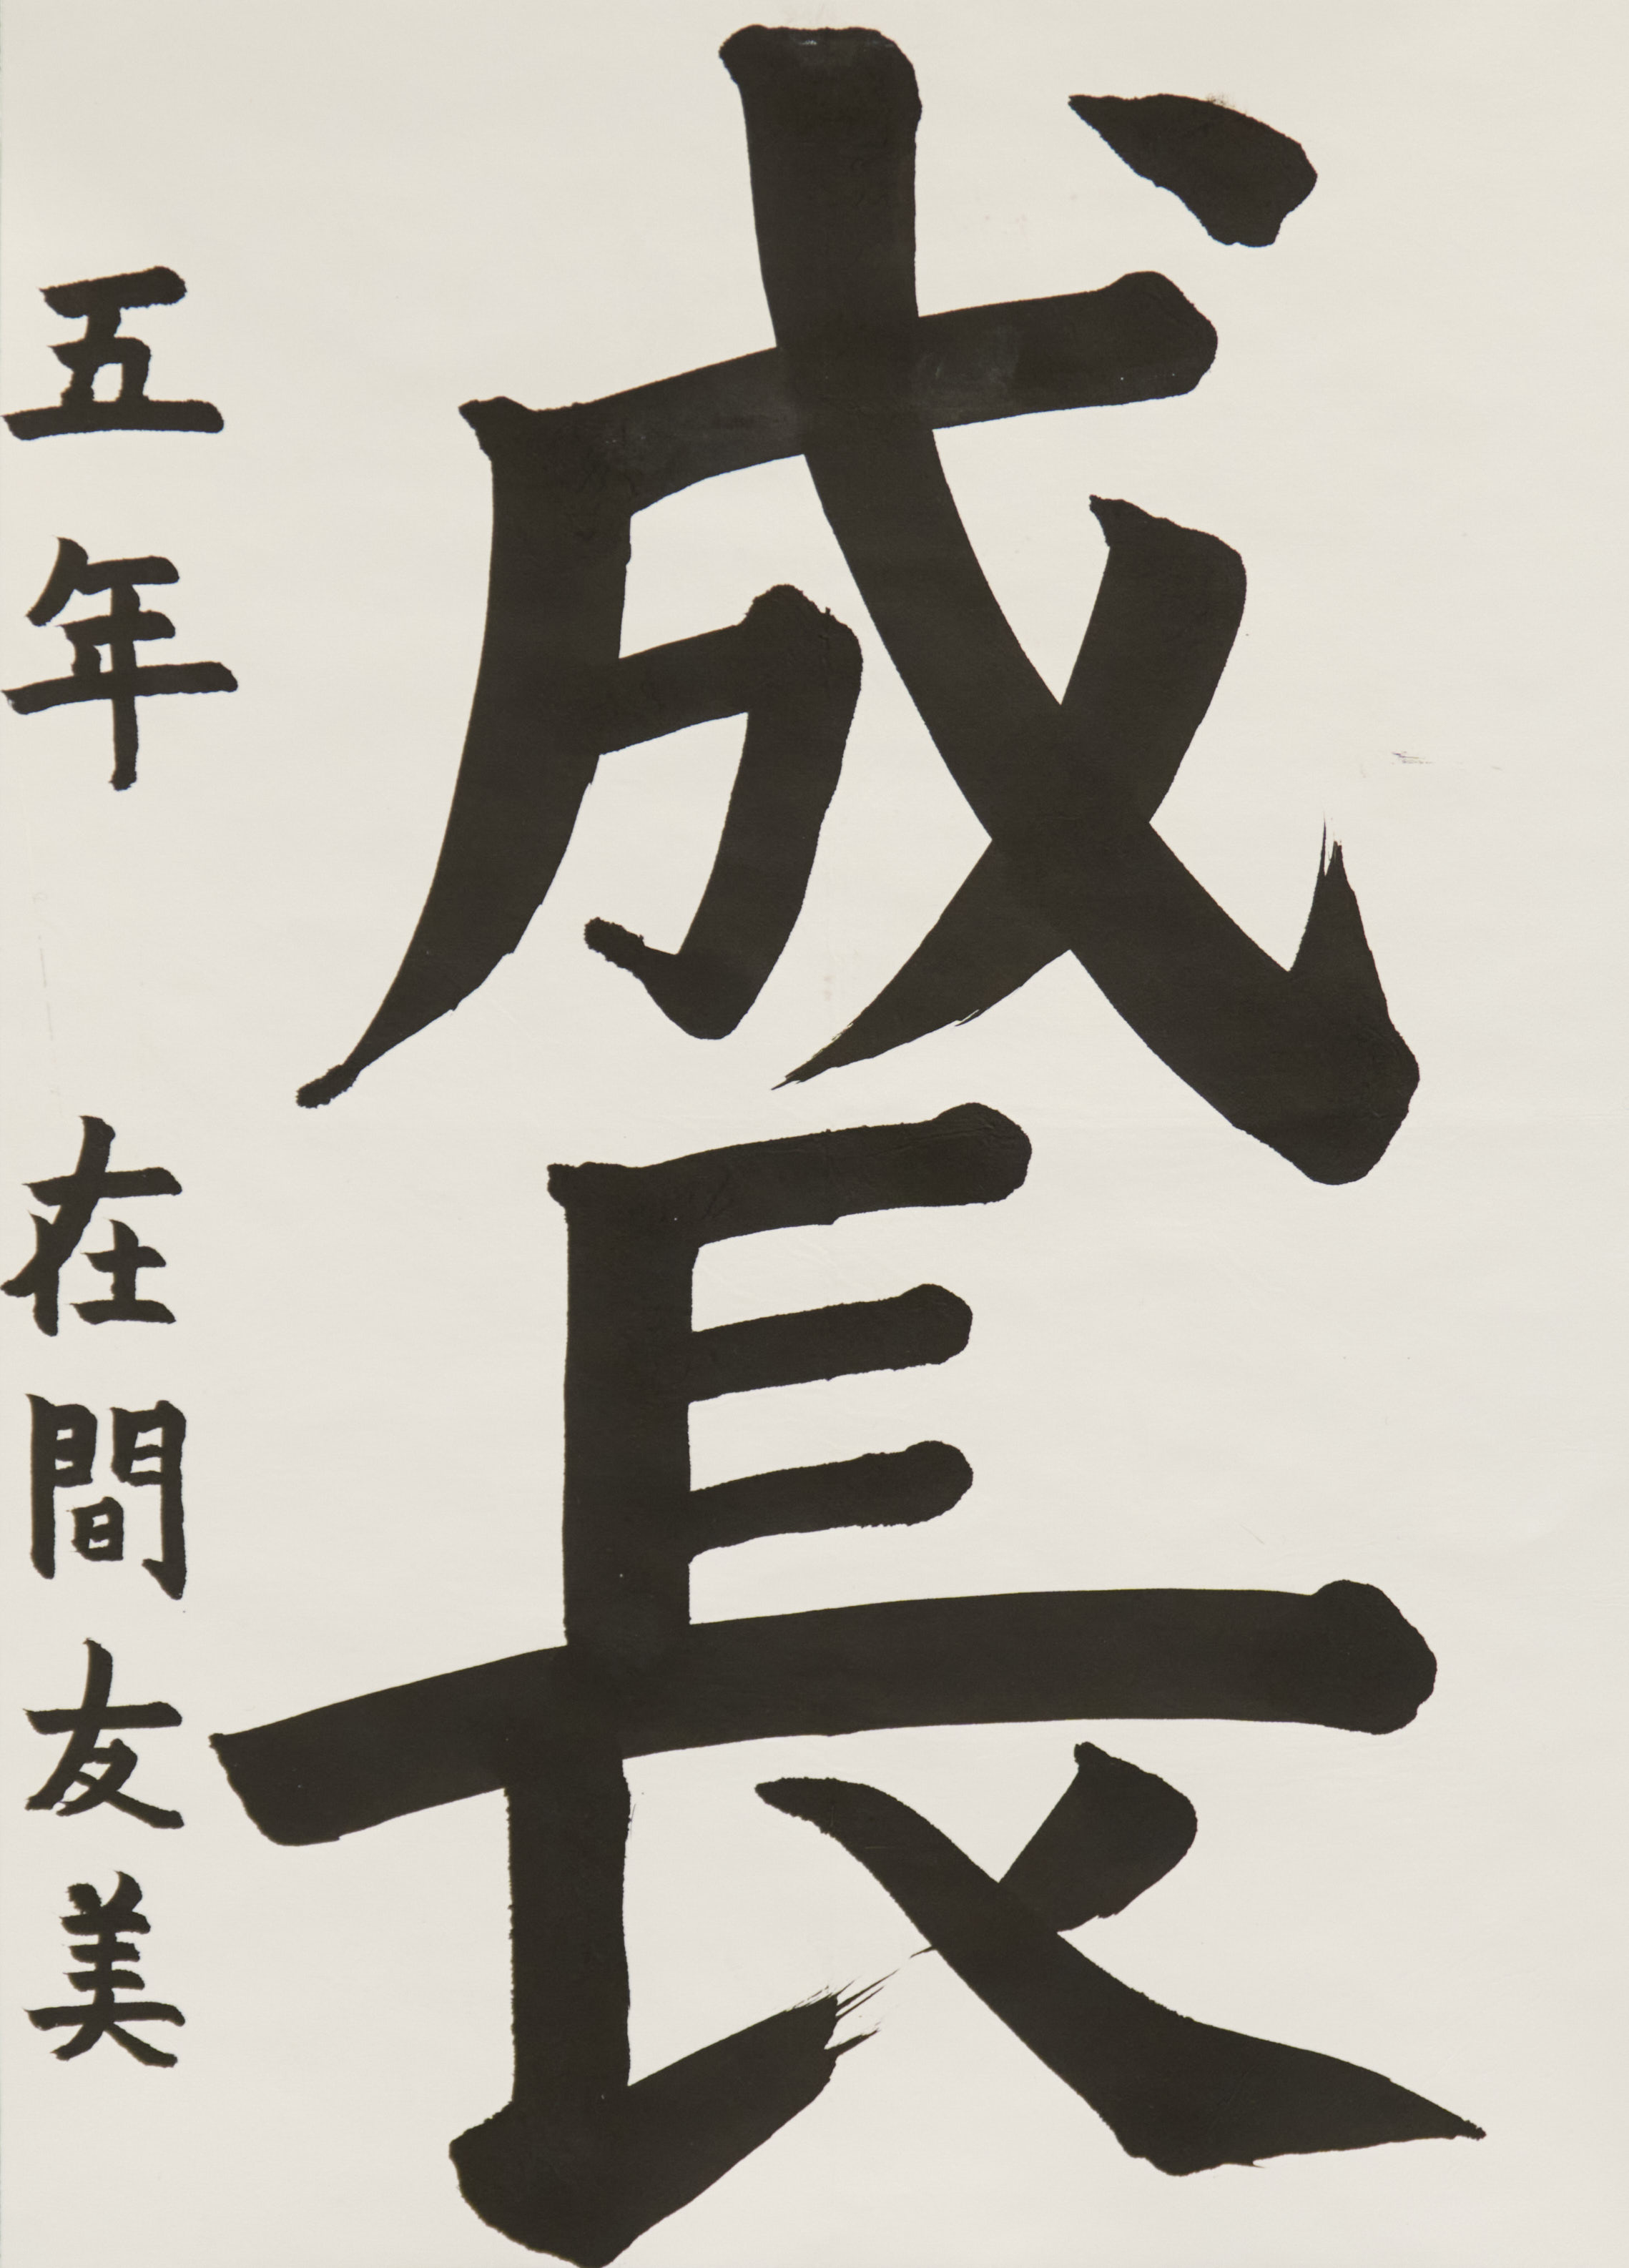 成長
五年 在間友美